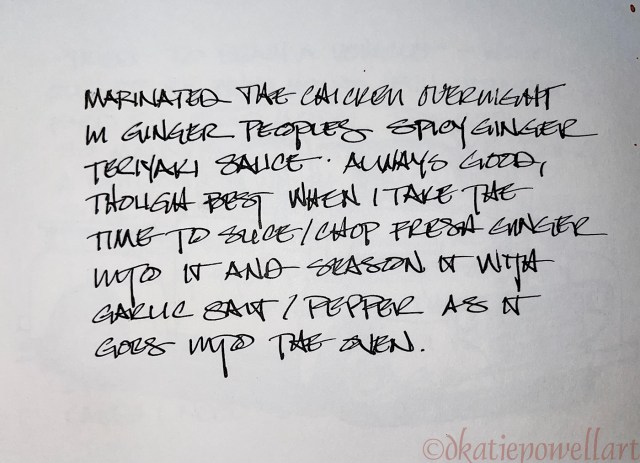 MARINATED THE CHICKEN OVERNIGHT
IN GINGER PEOPLES SPICY GINGER
TERIYAKI SAUCE. ALWAYS GOOD,
THOUGH BEST WHEN I TAKE THE
TIME TO SLICE/CHOP FRESH GINGER
INTO IT AND SEASON IT WITH
GARLIC SALT / PEPPER AS IT
GOES INTO THE OVEN.
©dkatiepowellart